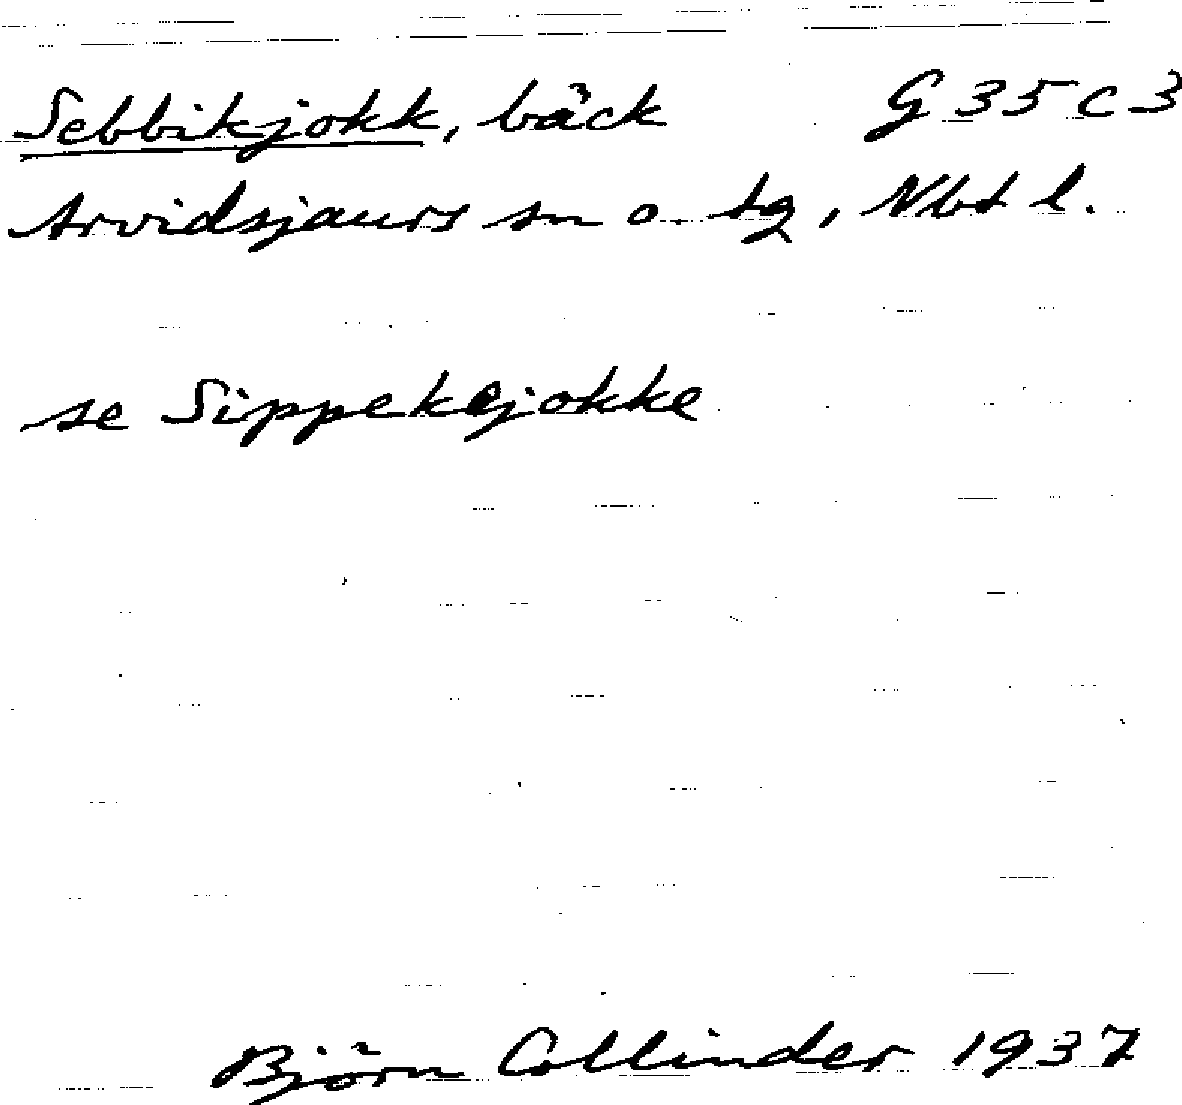 Sebbikjokk, bäck G 35 c 3
Arvidsjaurs sn o. tg, Nbt l.
se Sippekejokke
Björn Collinder 1937